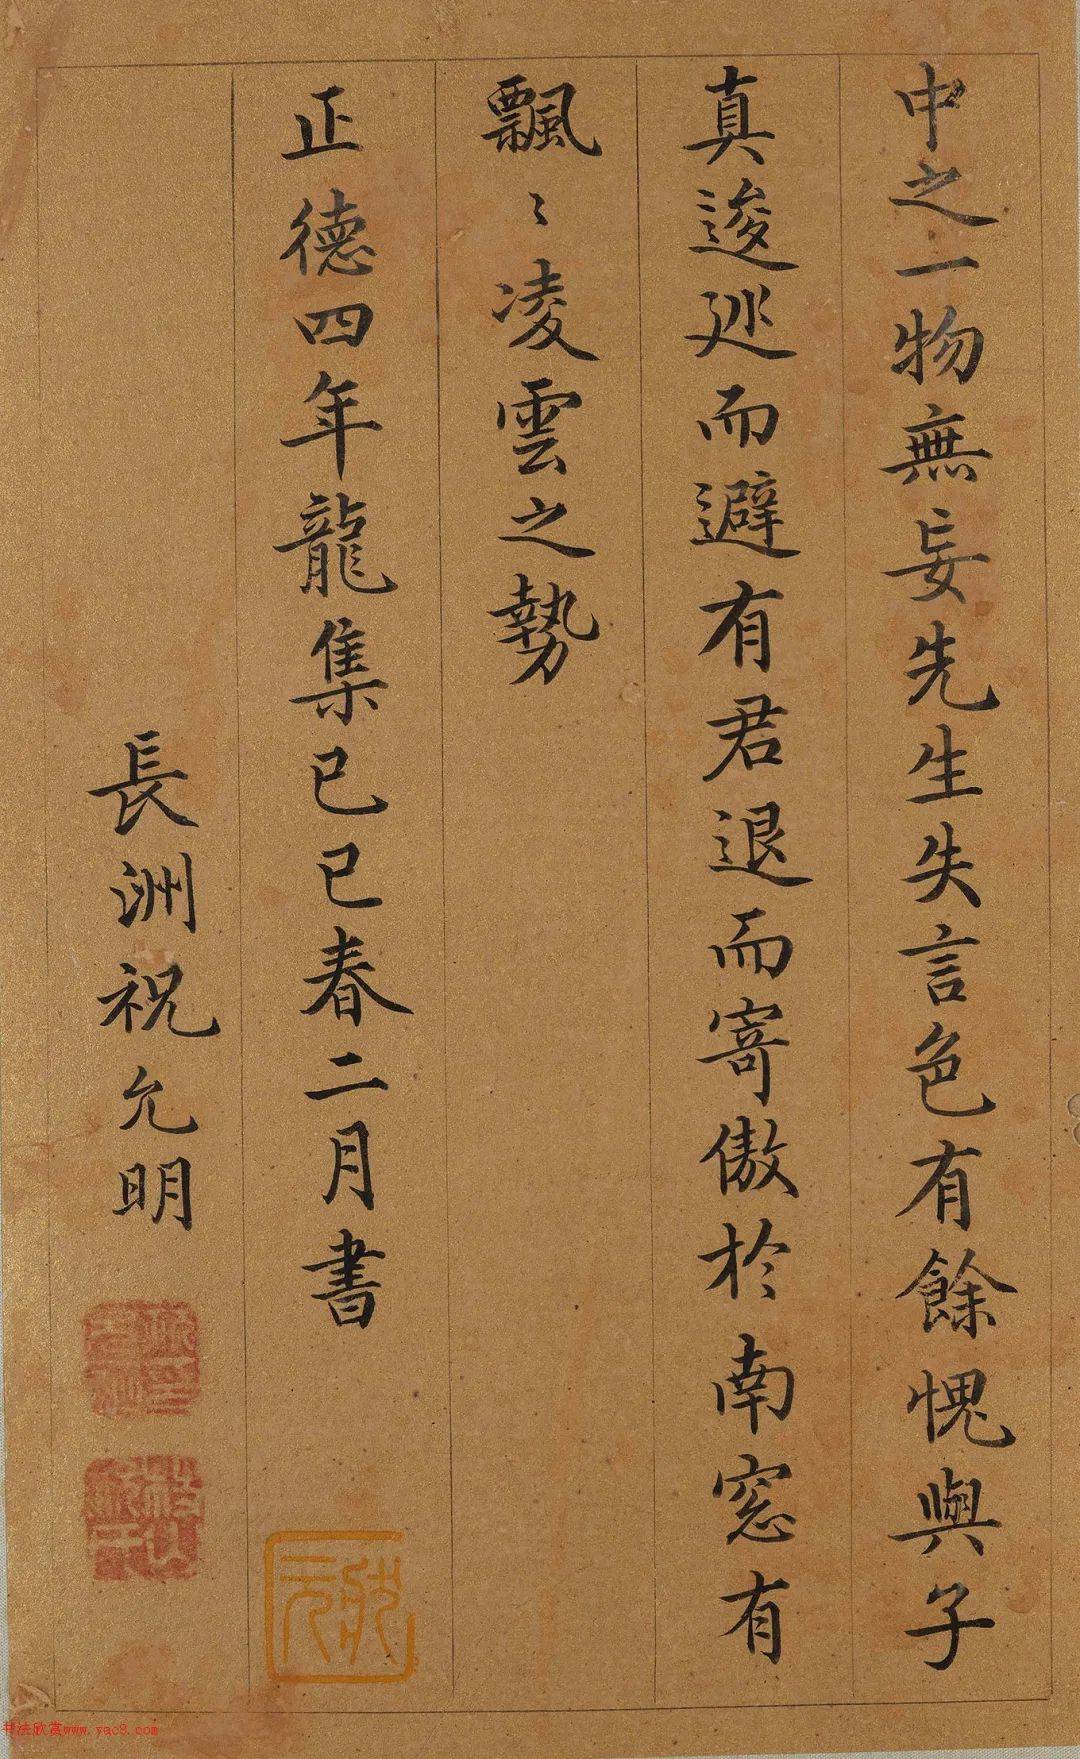 中之一物無妄先生失言色有餘愧與子
真逡巡而避有君退而寄傲於南窓有
飄〻凌雲之勢
正德四年龍集已已春二月書
長洲祝允明
书法欣赏www.yac8.com